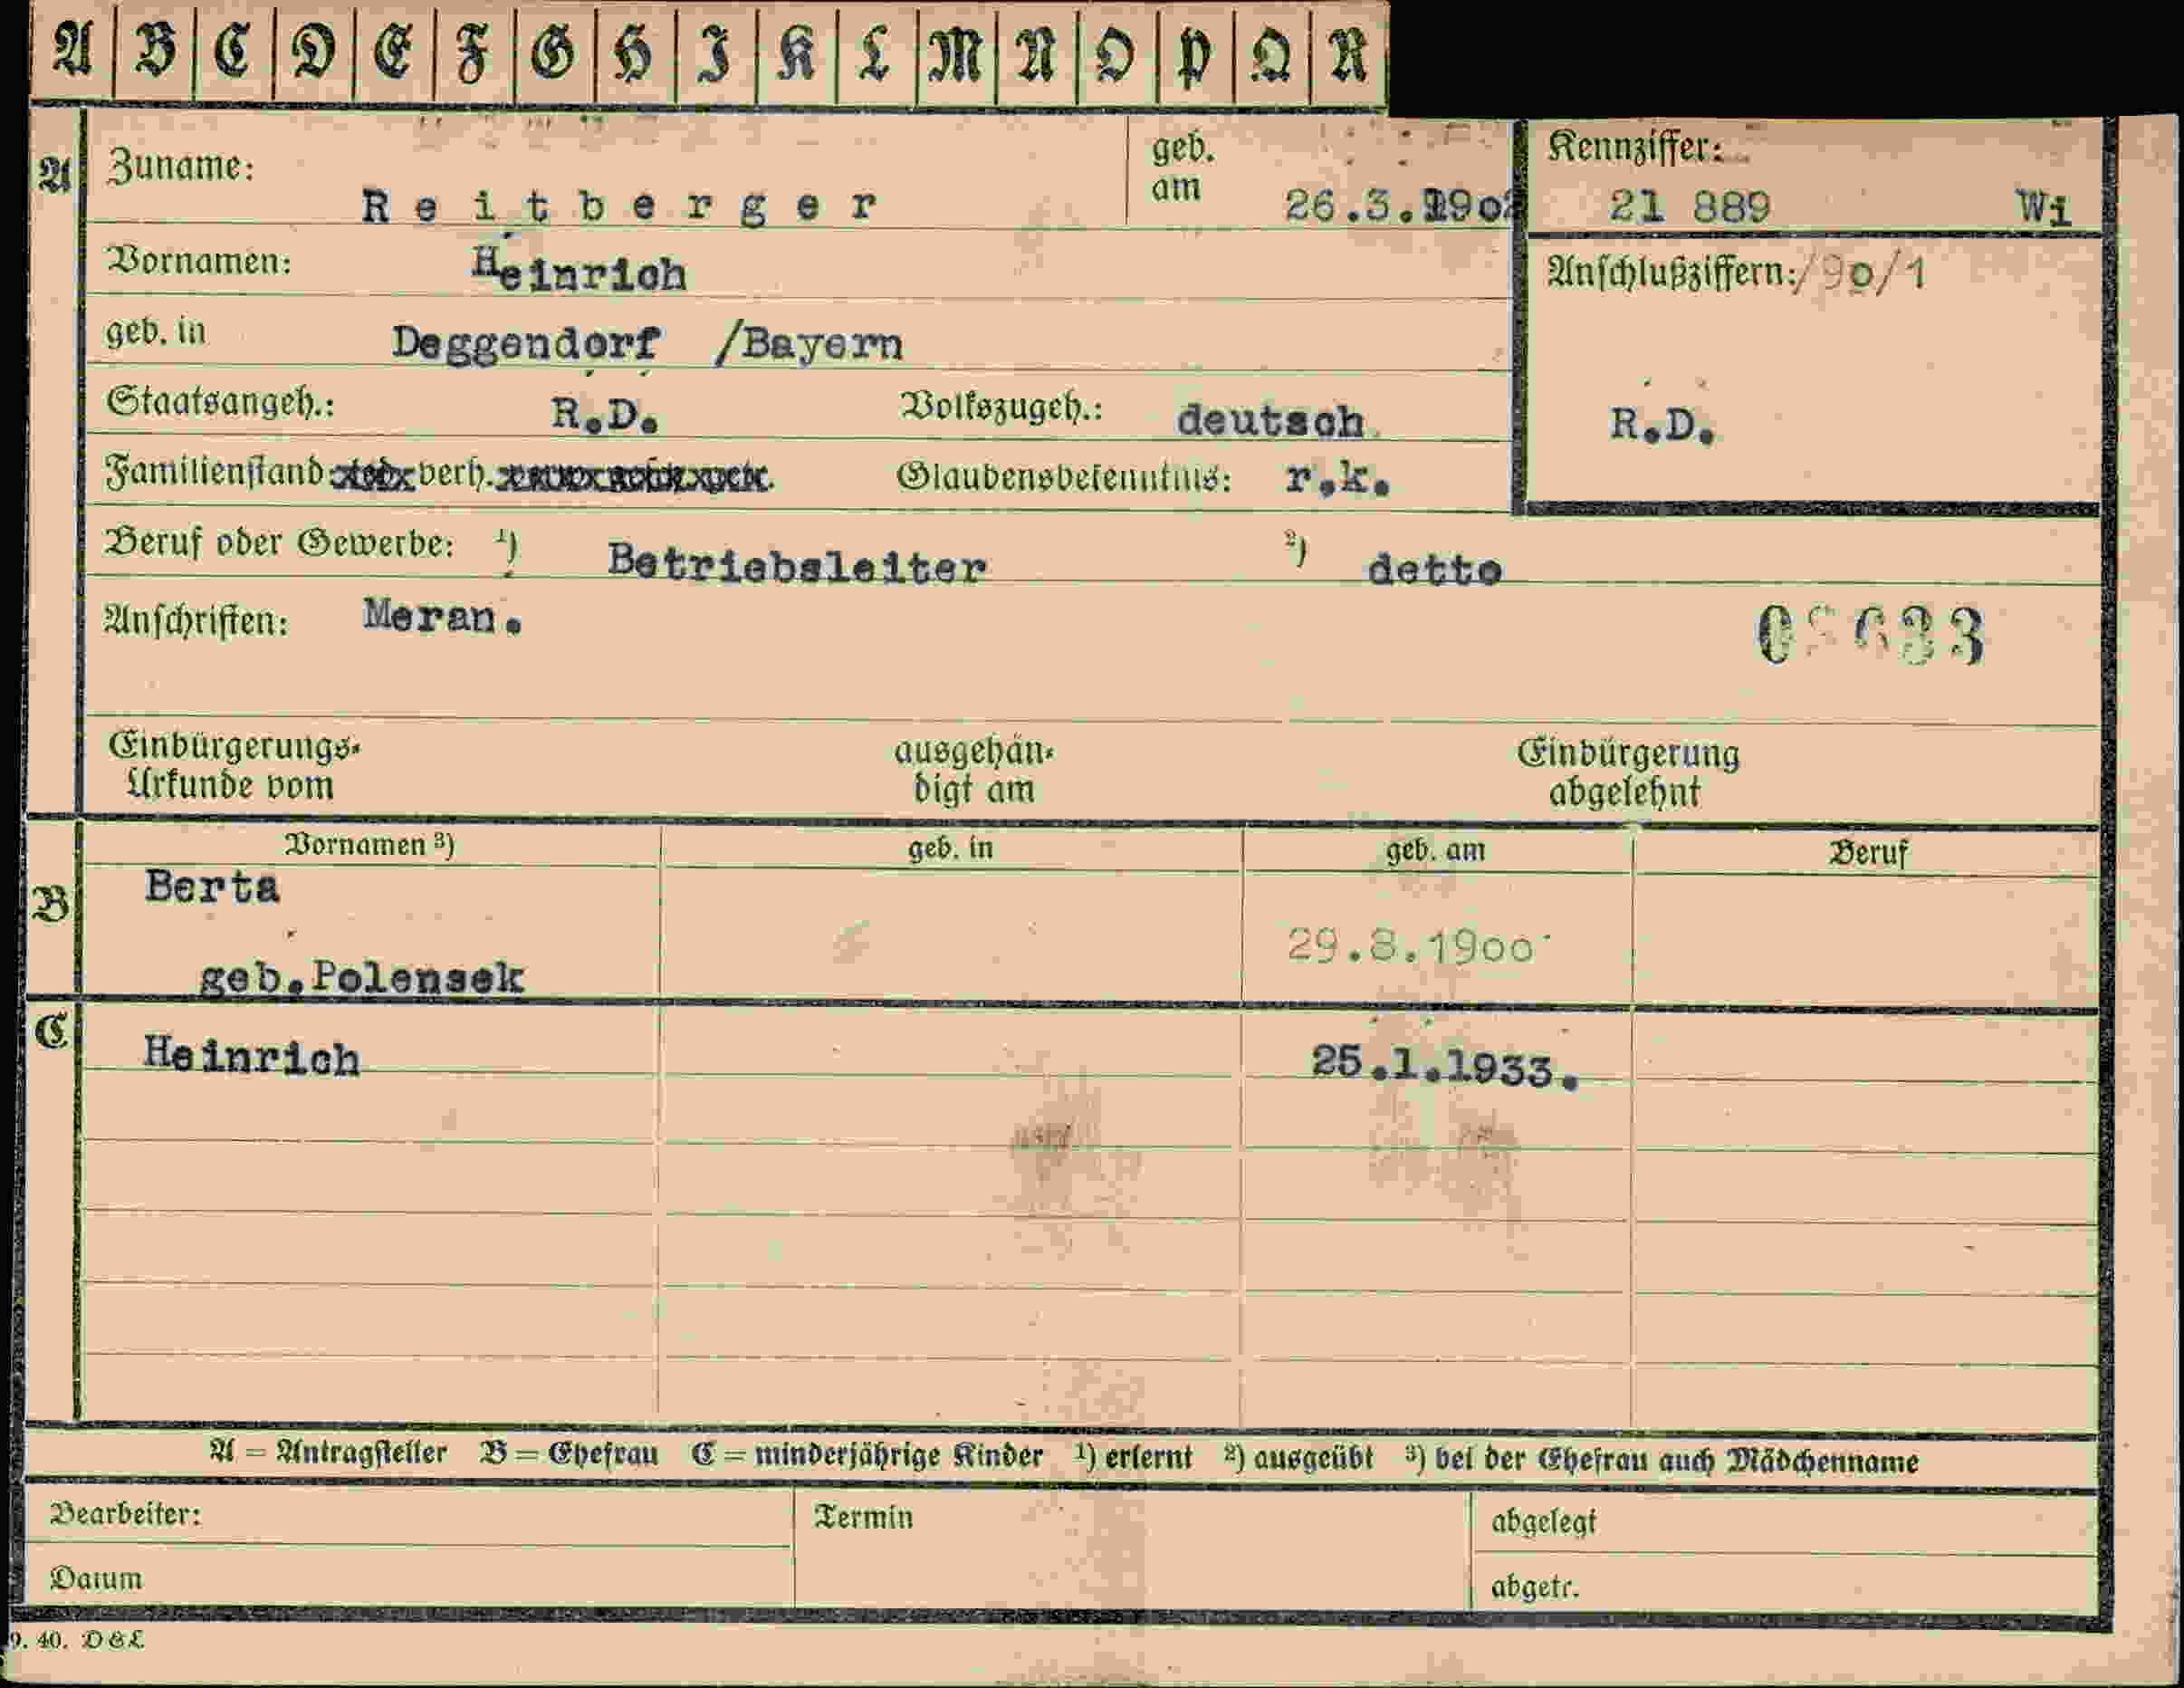 A B C D E F G H I K L M N O P Q R
A
Zuname: Reitberger
geb. am 26.3.1902
Kennziffer: 21 889 Wi
Vornamen: Heinrich
Anschlußziffern: /90/1
geb. in Deggendorf /Bayern
Staatsangeh.: R.D. Volkszugeh.: deutsch
R.D.
Familienstand verh. Glaubensbekenntnis: r.k.
Beruf oder Gewerbe: 1) Betriebsleiter 2) detto
Anschriften: Meran.
Einbürgerungs-Urkunde vom
ausgehändigt am
Einbürgerung abgelehnt
Vornamen 3) geb. in geb. am Beruf
B
Berta
29.8.1900
geb.Polensek
C
Heinrich 25.1.1933.
A = Antragsteller B = Ehefrau C = minderjährige Kinder 1) erlernt 2) ausgeübt 3) bei der Ehefrau auch Mädchenname
Bearbeiter: Termin abgelegt
Datum abgetr.
9. 40. D & L